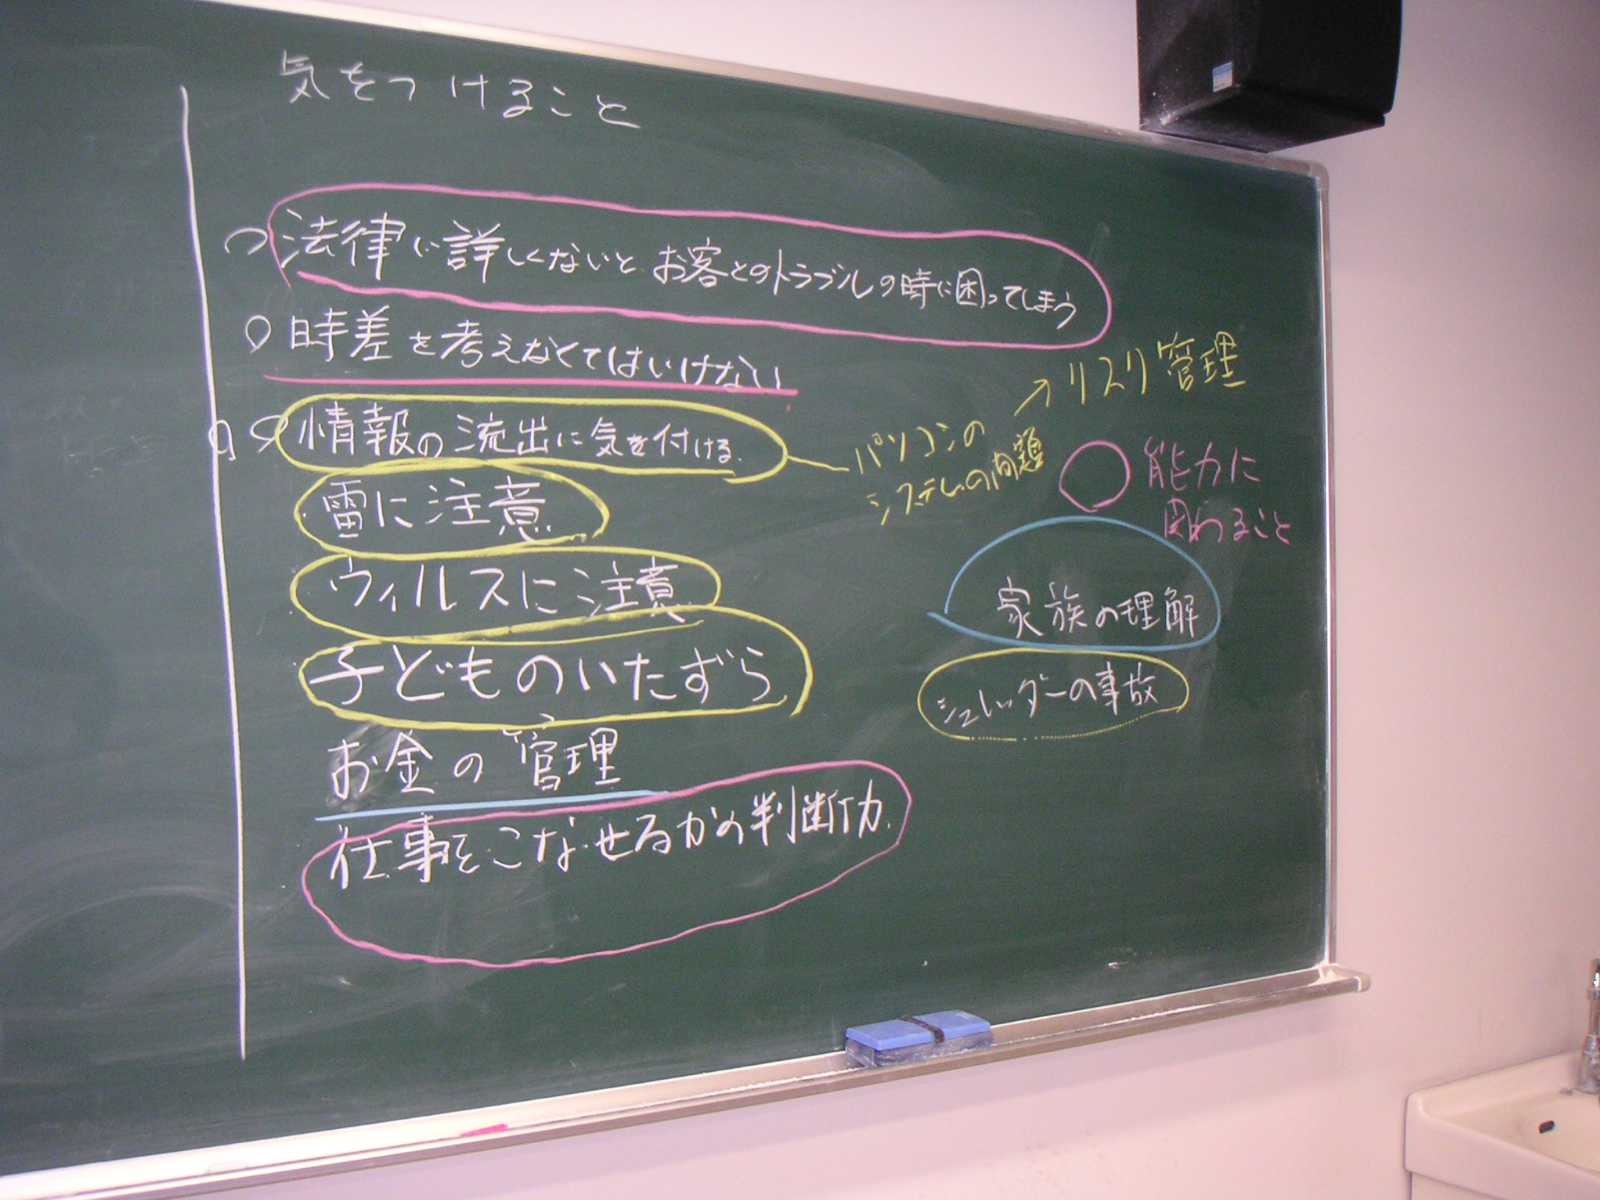 気をつけること
法律に詳しくないと お客とのトラブルの時に困ってしまう
時差を考えなくてはいけない
情報の流出に気を付ける
雷に注意
ウィルスに注意
子どものいたずら
お金の管理
仕事をこなせるかの判断力
パソコンの
システムの問題
→リスク管理
能力に
関わること
家族の理解
シュレッダーの事故